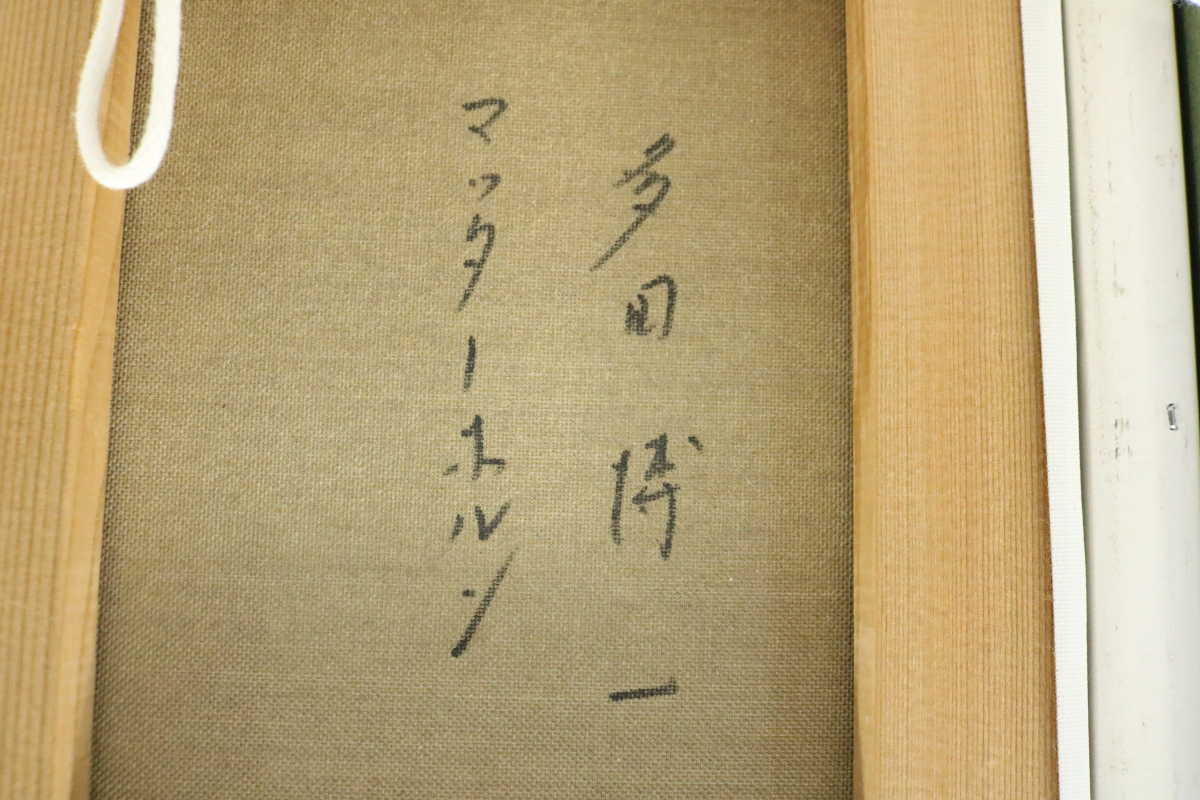 多田博一
マッターホルン